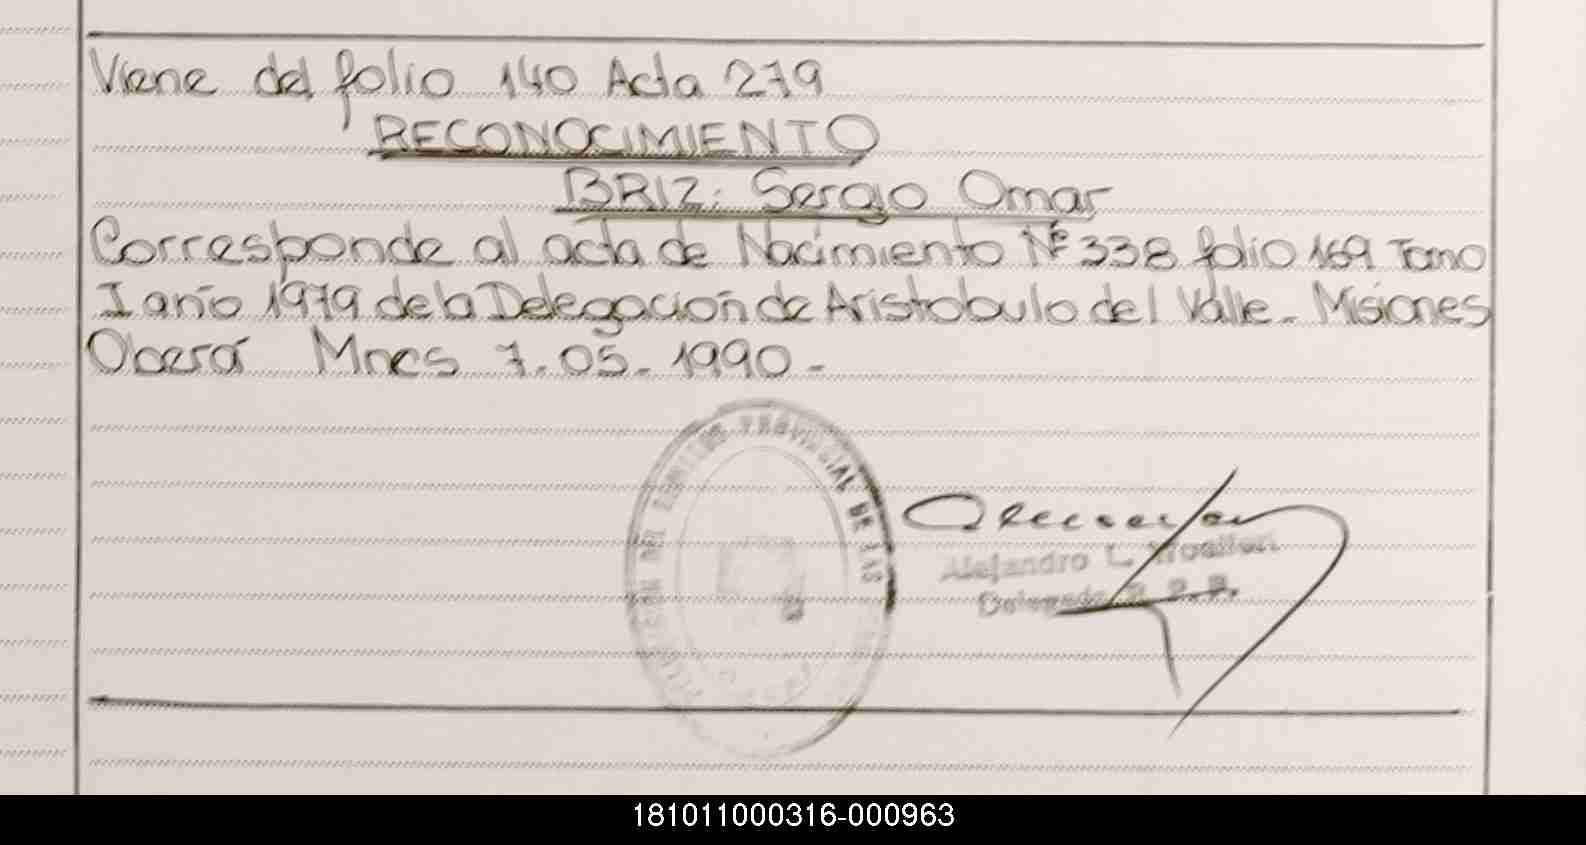 Viene del folio 140 Acta 279
RECONOCIMIENTO
BRIZ: Sergio Omar
Corresponde al acta de Nacimiento Nº 338 folio 169 Tomo
I año 1979 de la Delegación de Aristobulo del Valle - Misiones
Oberá Mnes 7.05.1990.-
PROVINCIAL DE LAS
Alejandro L.
Delegado
181011000316-000963